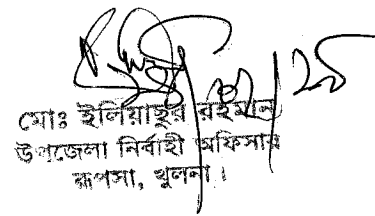 মোঃ ইলিয়াছুর রহমান
উপজেলা নির্বাহী অফিসার
রূপসা, খুলনা।